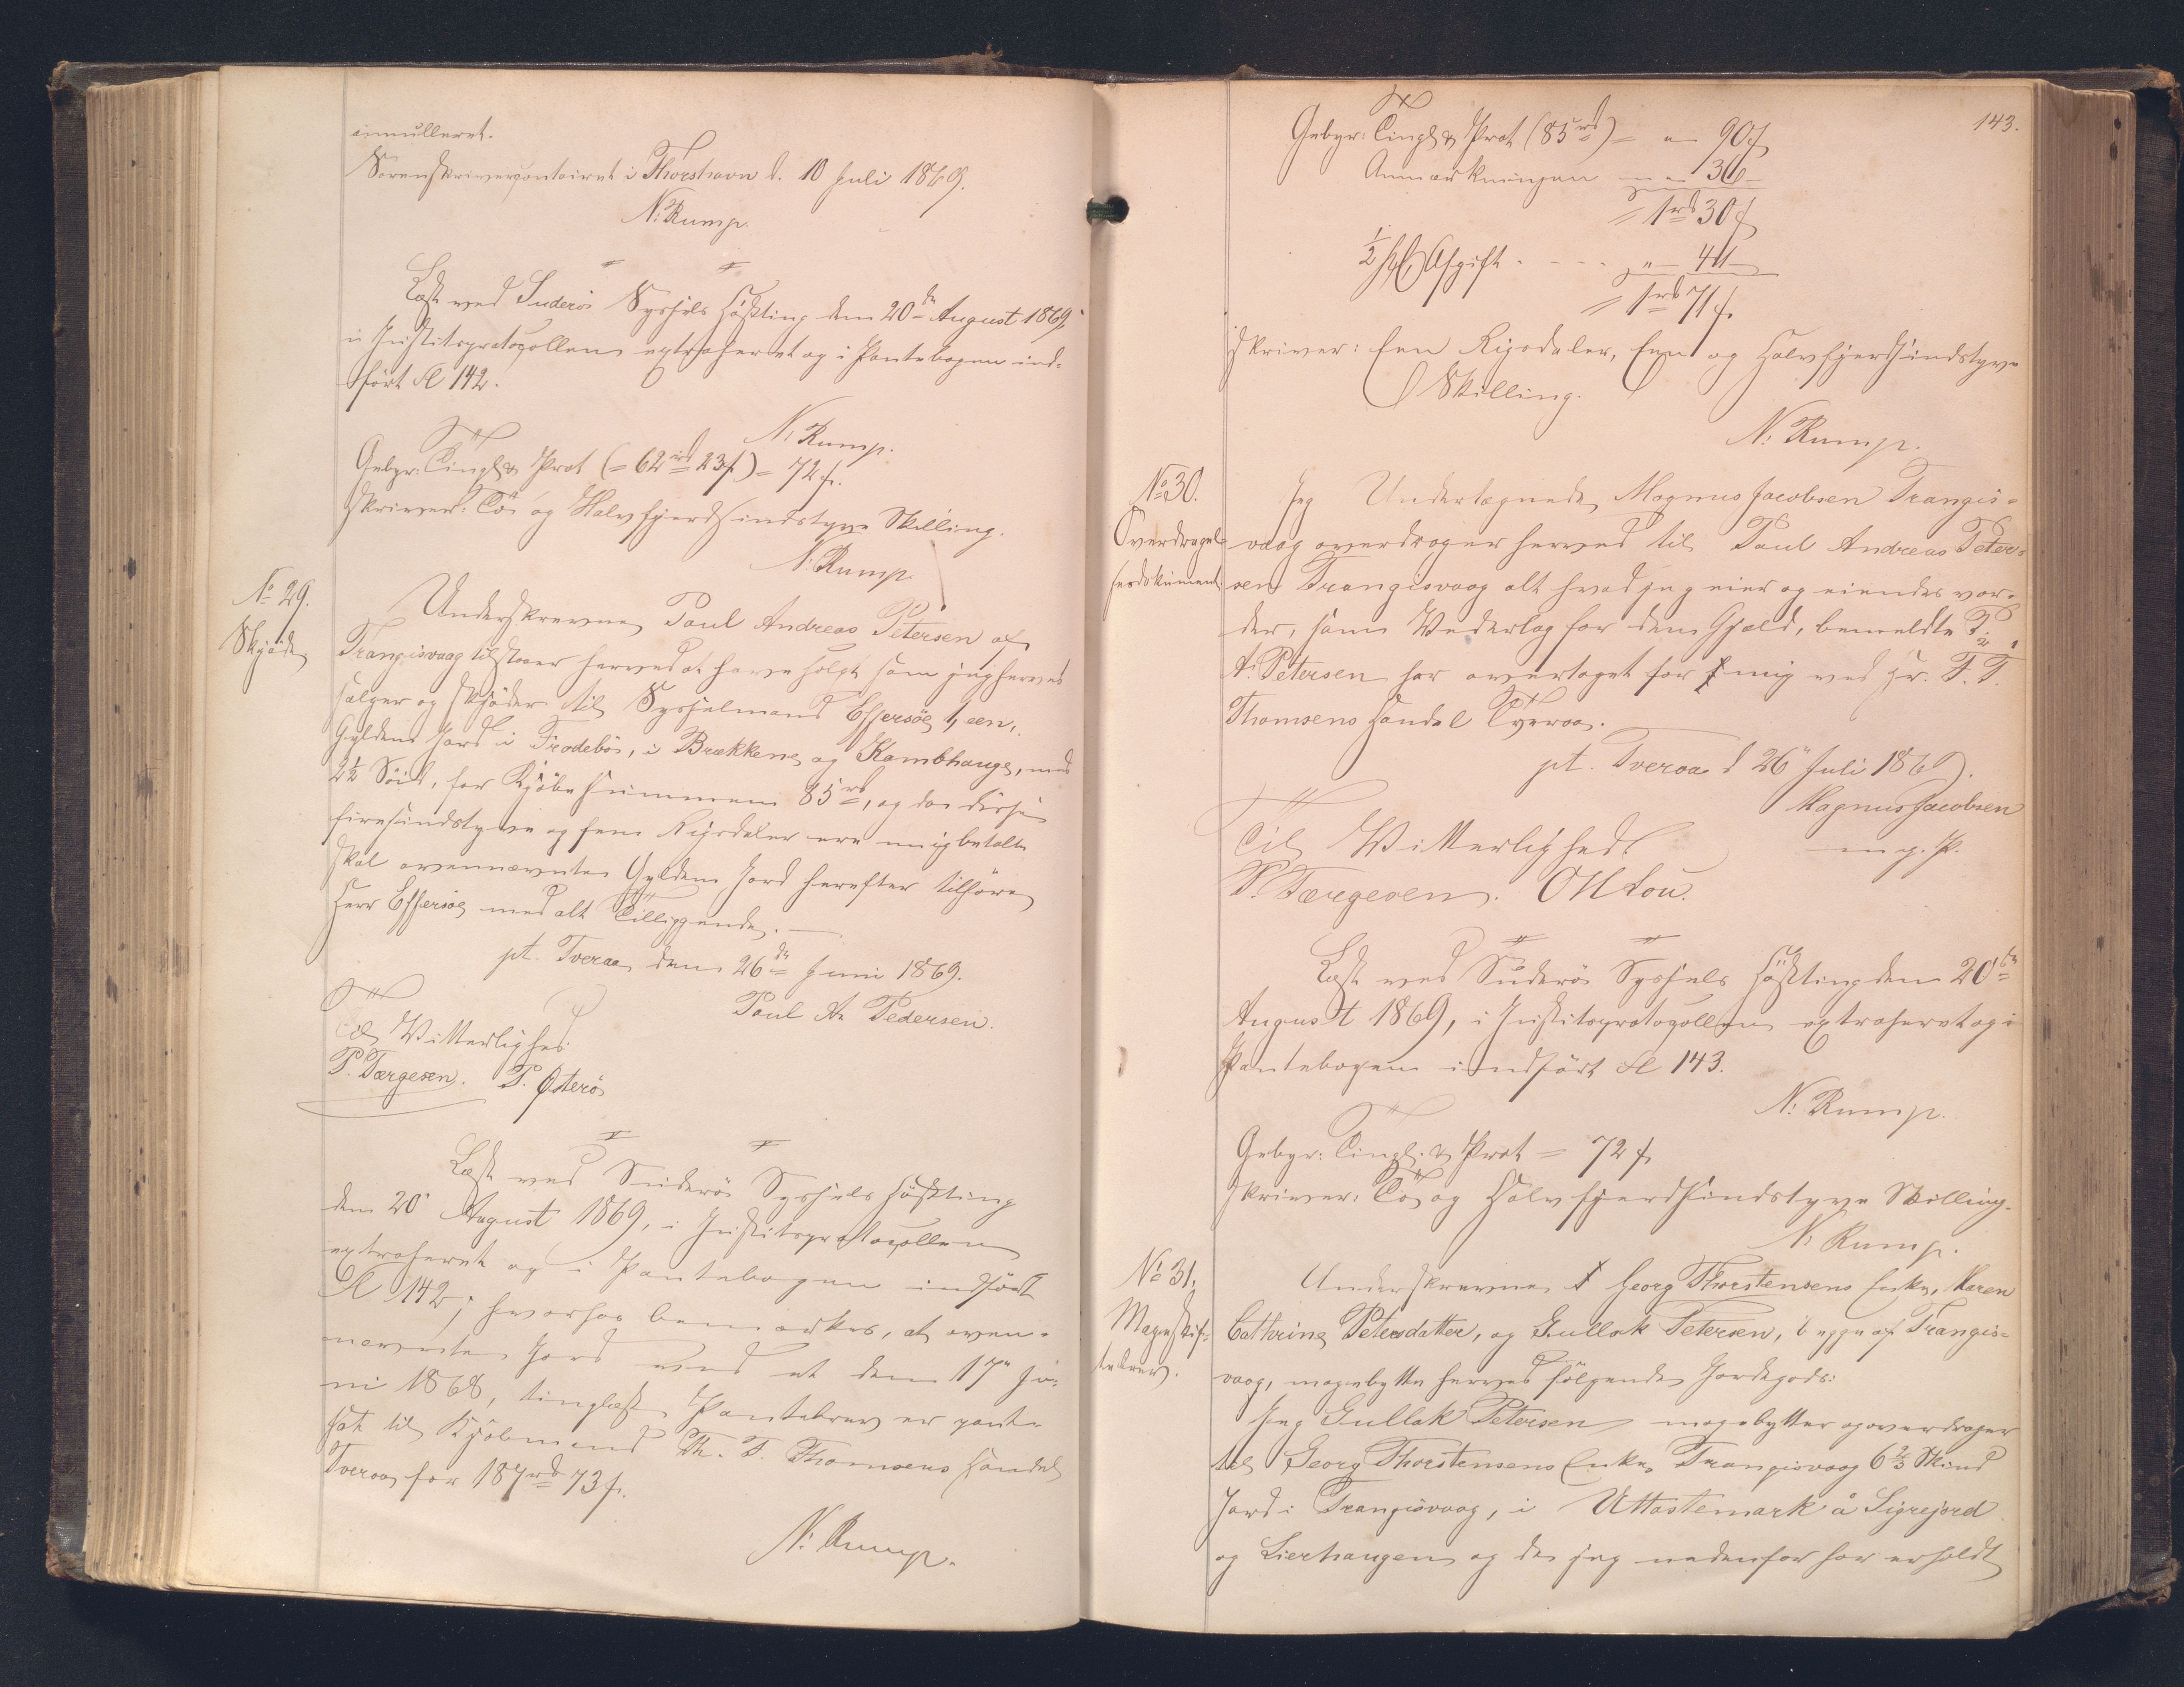 annulleret.
Sorenskrivercontoiret i Thorshavn d. 10 Juli 1869.
N. Rump.
Læst ved Suderö Syssels Høstting den 20de August 1869,
i Justitsprotocollen extraheret og i Pantebogen ind-
ført Fol 142.
N. Rump.
Gebyr: Tingl & Prot (= 62rd 23 s) = 72 s.
skriver: To og Halvfjerdsindstyve Skilling.
N. Rump.
No 29.
Skjöde
Underskrevne Poul Andreas Petersen af
Trangisvaag tilstaaer herved at have solgt som jeg herved
sælger og skjöder til Sysselmand Effersöe 1, een,
Gylden Jord i Frodebö, i Brækkene og Kambhauge, med
2½ Söid, for Kjöbesummen 85rd, og da disse
firesindstyve og fem Rigsdaler ere mig betalte
skal ovennævnte Gylden Jord herefter tilhøre
Herr Effersöe med alt Tilliggende.
pt. Tveraa den 26de Juni 1869.
Poul A. Pedersen.
Til Vitterlighed:
P. Tærgesen. P. Østerö
Læst ved Suderö Syssels Høstting
den 20 August 1869, i Justitsprotocollen
extraheret og i Pantebogen indført
Fol 142; hvorhos bemærkes, at oven-
nævnte Jord ved et den 17de Ju-
ni 1868, tinglæst Pantebrev er pant-
sat til Kjöbmand Th. F. Thomsens Handel
Tveraa for 187rd 73 s.
N. Rump.
143.
Gebyr: Tingl & Prot (85rd) = " - 90 s
Anmærkningen " - 36 -
= 1rd 30 s
½ pCt Afgift . - - - " - 41 -
= 1rd 71 s.
skriver: Een Rigsdaler, Een og Halvfjerdsindstyve
Skilling.
N. Rump.
No 30.
Overdragel-
sesdokument.
Jeg Undertegnede Magnus Jacobsen Trangis-
vaag overdrager herved til Poul Andreas Peter-
sen Trangisvaag alt hvad jeg eier og eiendes vor-
der, som Vederlag for den Gjæld, bemeldte P.
A. Petersen har overtaget for mig ved Hr. T. F.
Thomsens Handel Tveraa.
pt. Tveraa d 26 Juli 1869.
Magnus Jacobsen
m. p. P.
Til Vitterlighed
P. Tærgesen. O M Lou.
Læst ved Suderö Syssels Høstting den 20de
August 1869, i Justitsprotocollen extraheret og i
Pantebogen indført Fol 143.
N. Rump.
Gebyr: Tingl. & Prot = 72 s
skriver: To og Halvfjerdsindstyve Skilling.
N. Rump.
No 31.
Mageskif-
tebrev.
Underskrevne Georg Thorstensens Enke, Karen
Cathrine Petersdatter, og Gullak Petersen, begge af Trangis-
vaag, magebytte herved følgende Jordegods:
Jeg Gullak Petersen magebytter og overdrager
til Georg Thorstensens Enke Trangisvaag 6⅔ Skind
Jord i Trangisvaag, i Uttastemark å Sigrejord
og Lierhaugen og da jeg nedenfor har erholdt